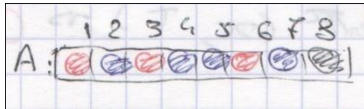 1 2 3 4 5 6 7 8
A: